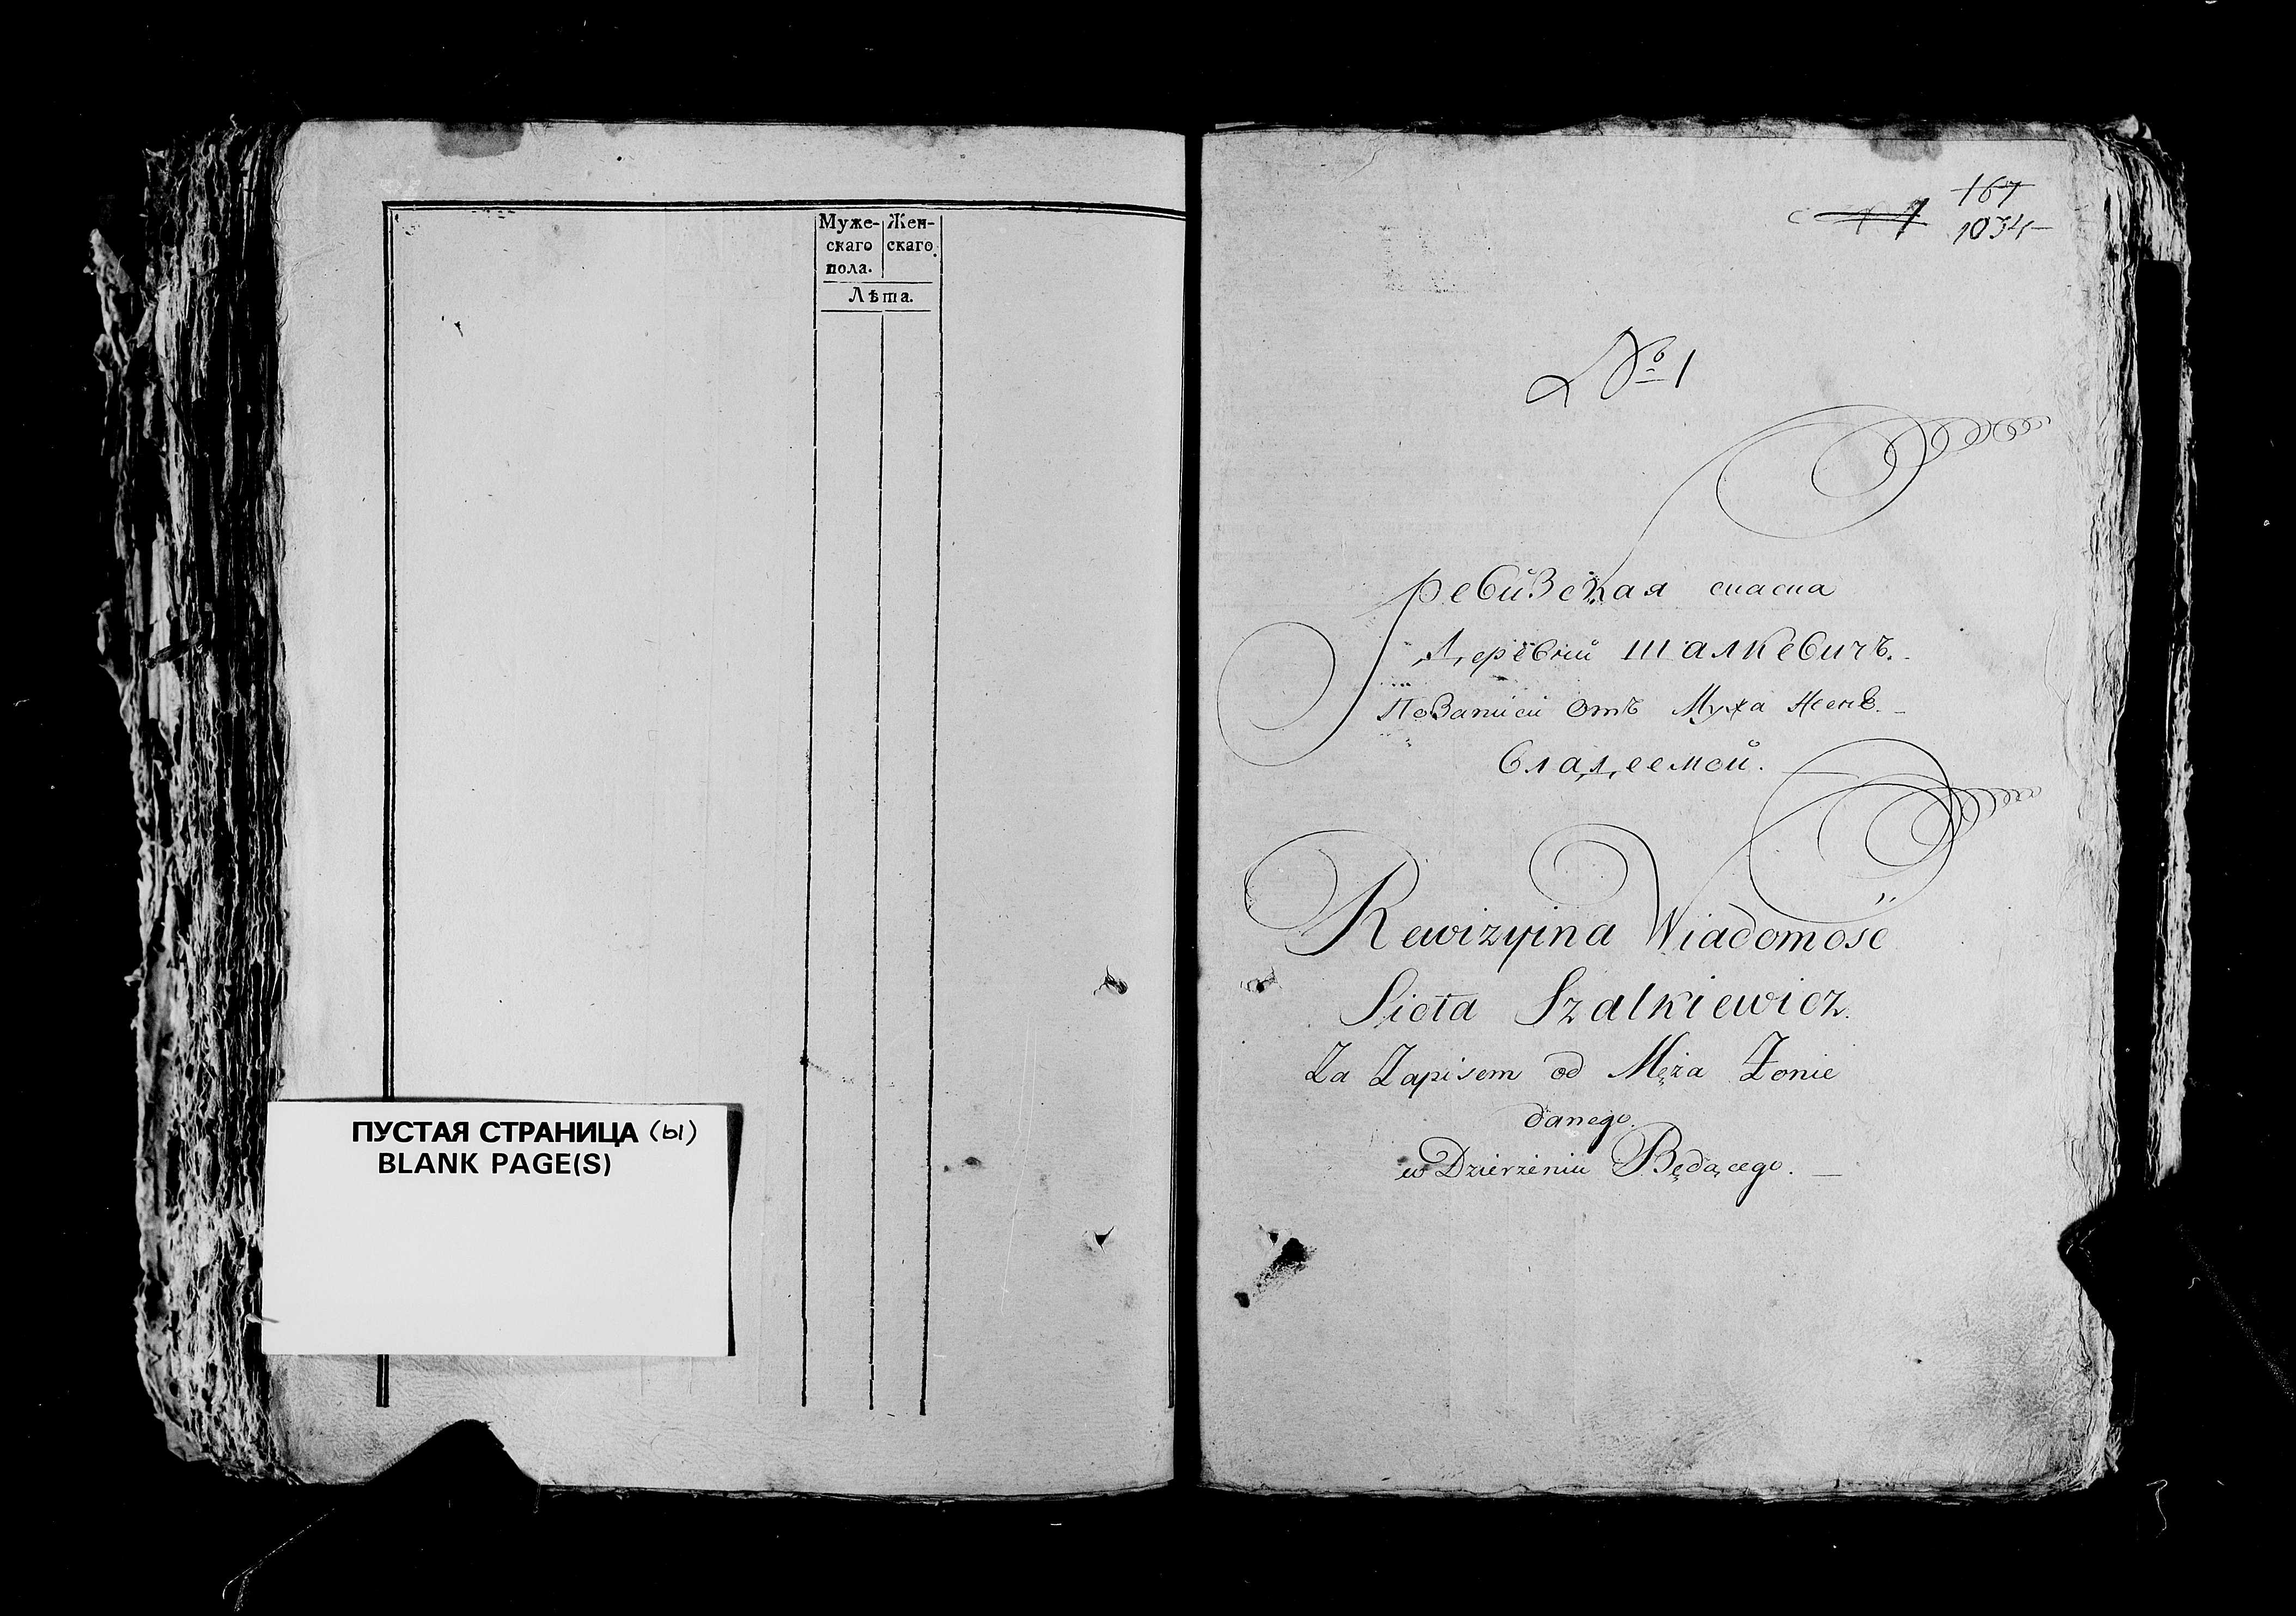 Муже- Жен-
скаго скаго
пола.
Лѣта.
ПУСТАЯ СТРАНИЦА (ы)
BLANK PAGE(S)
167
1034
№ 1
ревизская сказка
деревни Шалкевичъ.
По записи отъ Мужа Женѣ.
владеемой.
Rewizyina Wiadomość
Sioła Szalkiewicz.
Za Zapisem od Męża Żonie
danego
w Dzierżeniu Będącego.